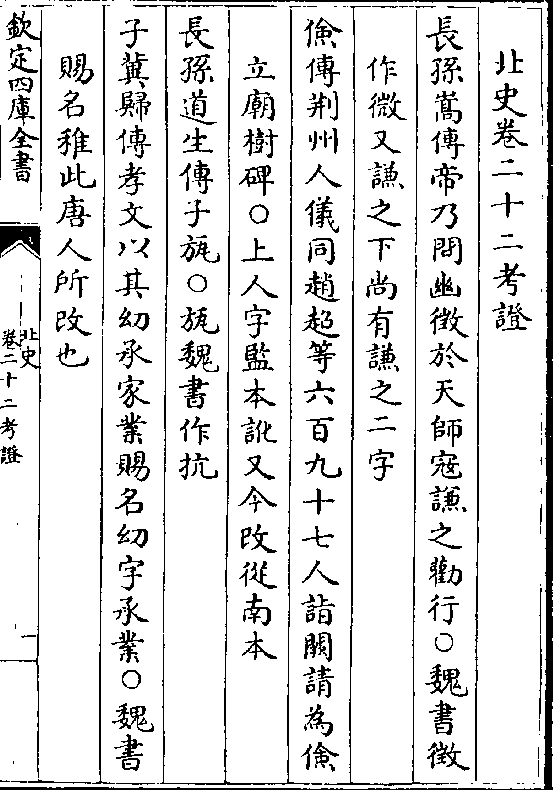 北史卷二十二考證
長孫嵩傳帝乃問幽徵於天師寇謙之勸行○魏書徵
作微又謙之下尚有謙之二字
儉傳荆州人儀同趙超等六百九十七人詣闕請為儉
立廟樹碑○上人字監本訛又今改從南本
長孫道生傳子瓬○瓬魏書作抗
子冀歸傳孝文以其幼承家業賜名幼字承業○魏書
賜名稚此唐人所改也
欽定四庫全書
北史
卷二十二考證
一